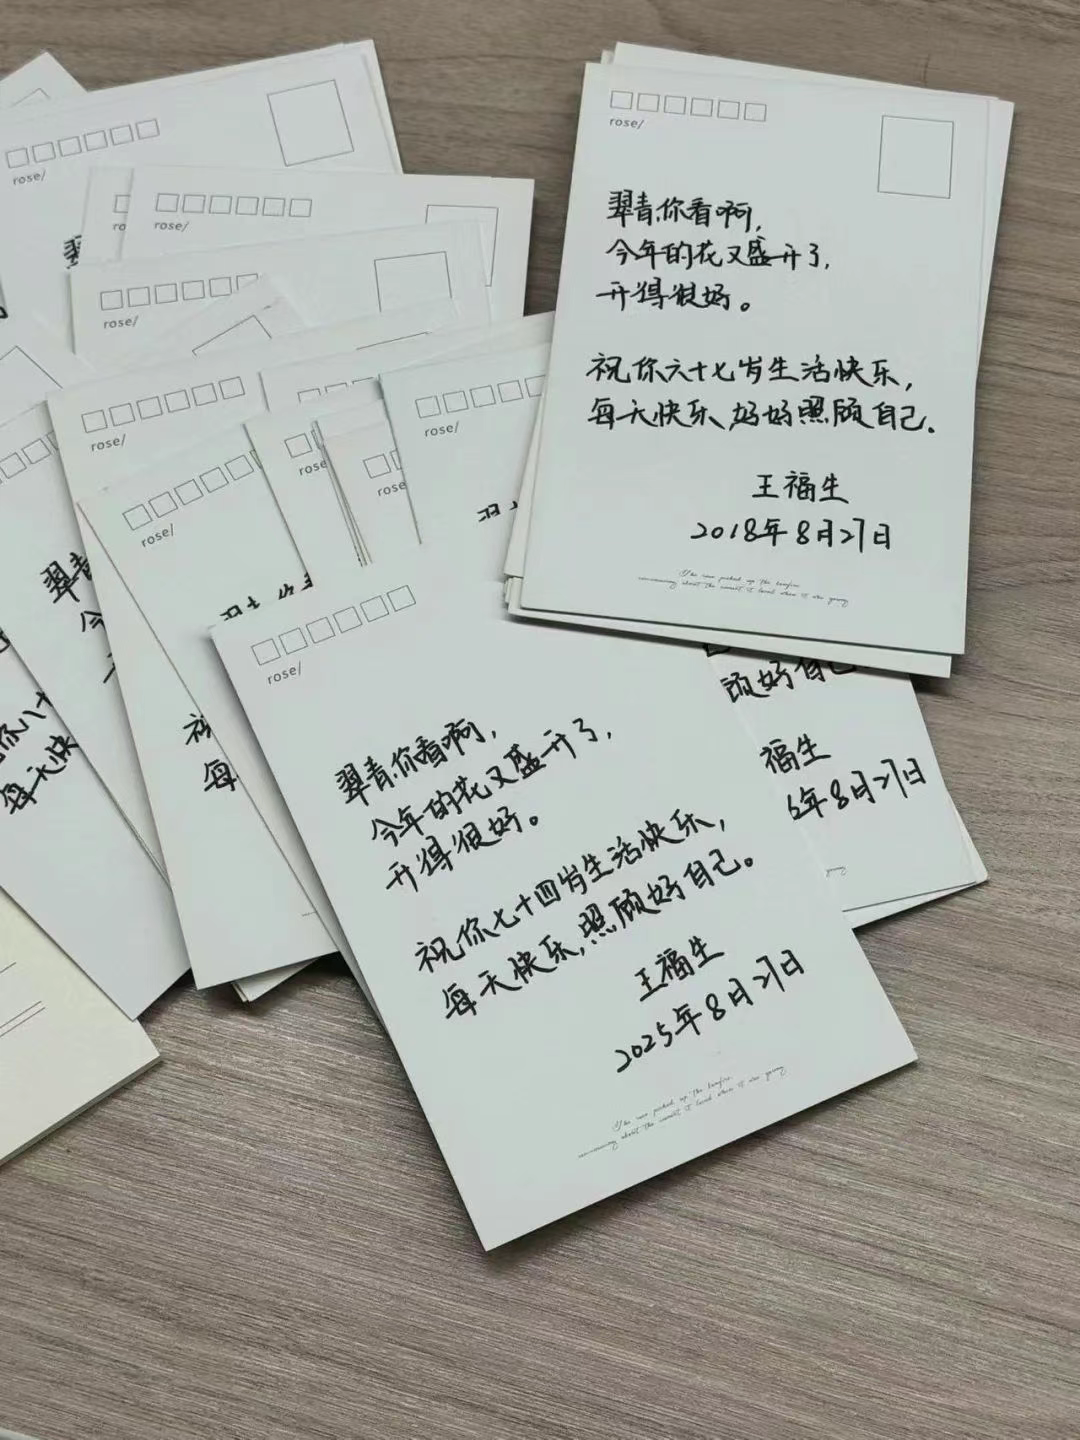 rose/
翠青你看啊，
今年的花又盛开了，
开得很好。
祝你六十七岁生活快乐，
每天快乐，好好照顾自己。
王福生
2018年8月27日
rose/
翠青你看啊，
今年的花又盛开了，
开得很好。
祝你七十四岁生活快乐，
每天快乐，照顾好自己。
王福生
2025年8月27日
顾好自己
福生
年8月27日
rose/
rose/
rose/
rose/
rose/
rose/
rose/
rose/
翠青
今
你八十
每天快
祝
每